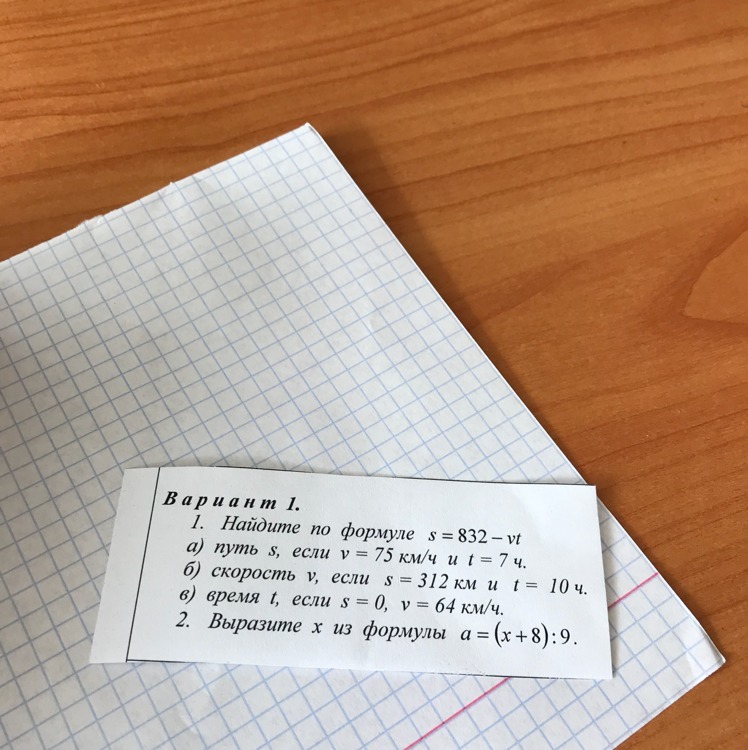 Вариант 1.
1. Найдите по формуле s = 832 – vt
а) путь s, если v = 75 км/ч и t = 7 ч.
б) скорость v, если s = 312 км и t = 10 ч.
в) время t, если s = 0, v = 64 км/ч.
2. Выразите x из формулы a = (x + 8) : 9.